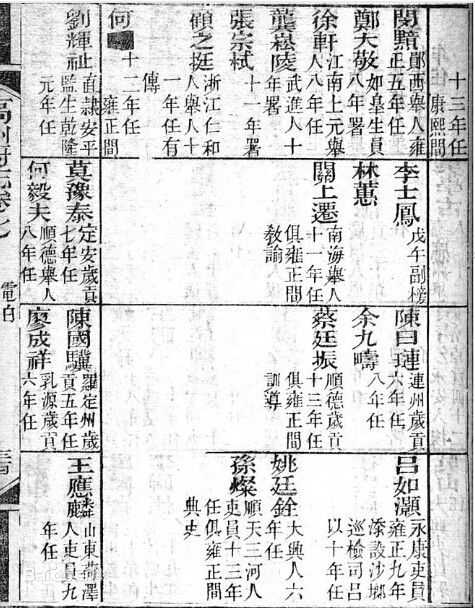 十三年任
康熙間
閔黯
鄖西舉人雍
正五年任
鄭大敬
如皋生員
八年署
徐軒
江南上元舉
人八年任
龔崧陵
武進人十
年署
張宗栻
十一年署
顧之挺
浙江仁和
人舉人十
一年任有
傳
何
十二年任
雍正間
劉輝祉
直隸安平
監生乾隆
元年任
李士鳳
戊午副榜
林蕙
關上遷
南海舉人
十一年任
俱雍正間
教諭
莫豫泰
定安歲貢
七年任
何毅夫
順德舉人
八年任
陳曰璉
連州歲貢
六年任
余九疇
八年任
蔡廷振
順德歲貢
十三年任
俱雍正間
訓導
陳國驥
羅定州歲
貢五年任
廖成祥
乳源歲貢
六年任
呂如灝
永康吏員
雍正九年
添設沙瑯
巡檢司呂
以十年任
姚廷銓
大興人六
年任
孫燦
順天三河人
吏員十三年
任俱雍正間
典史
王應麟
山東荷澤
人吏員九
年任
高州府志卷之七
電白